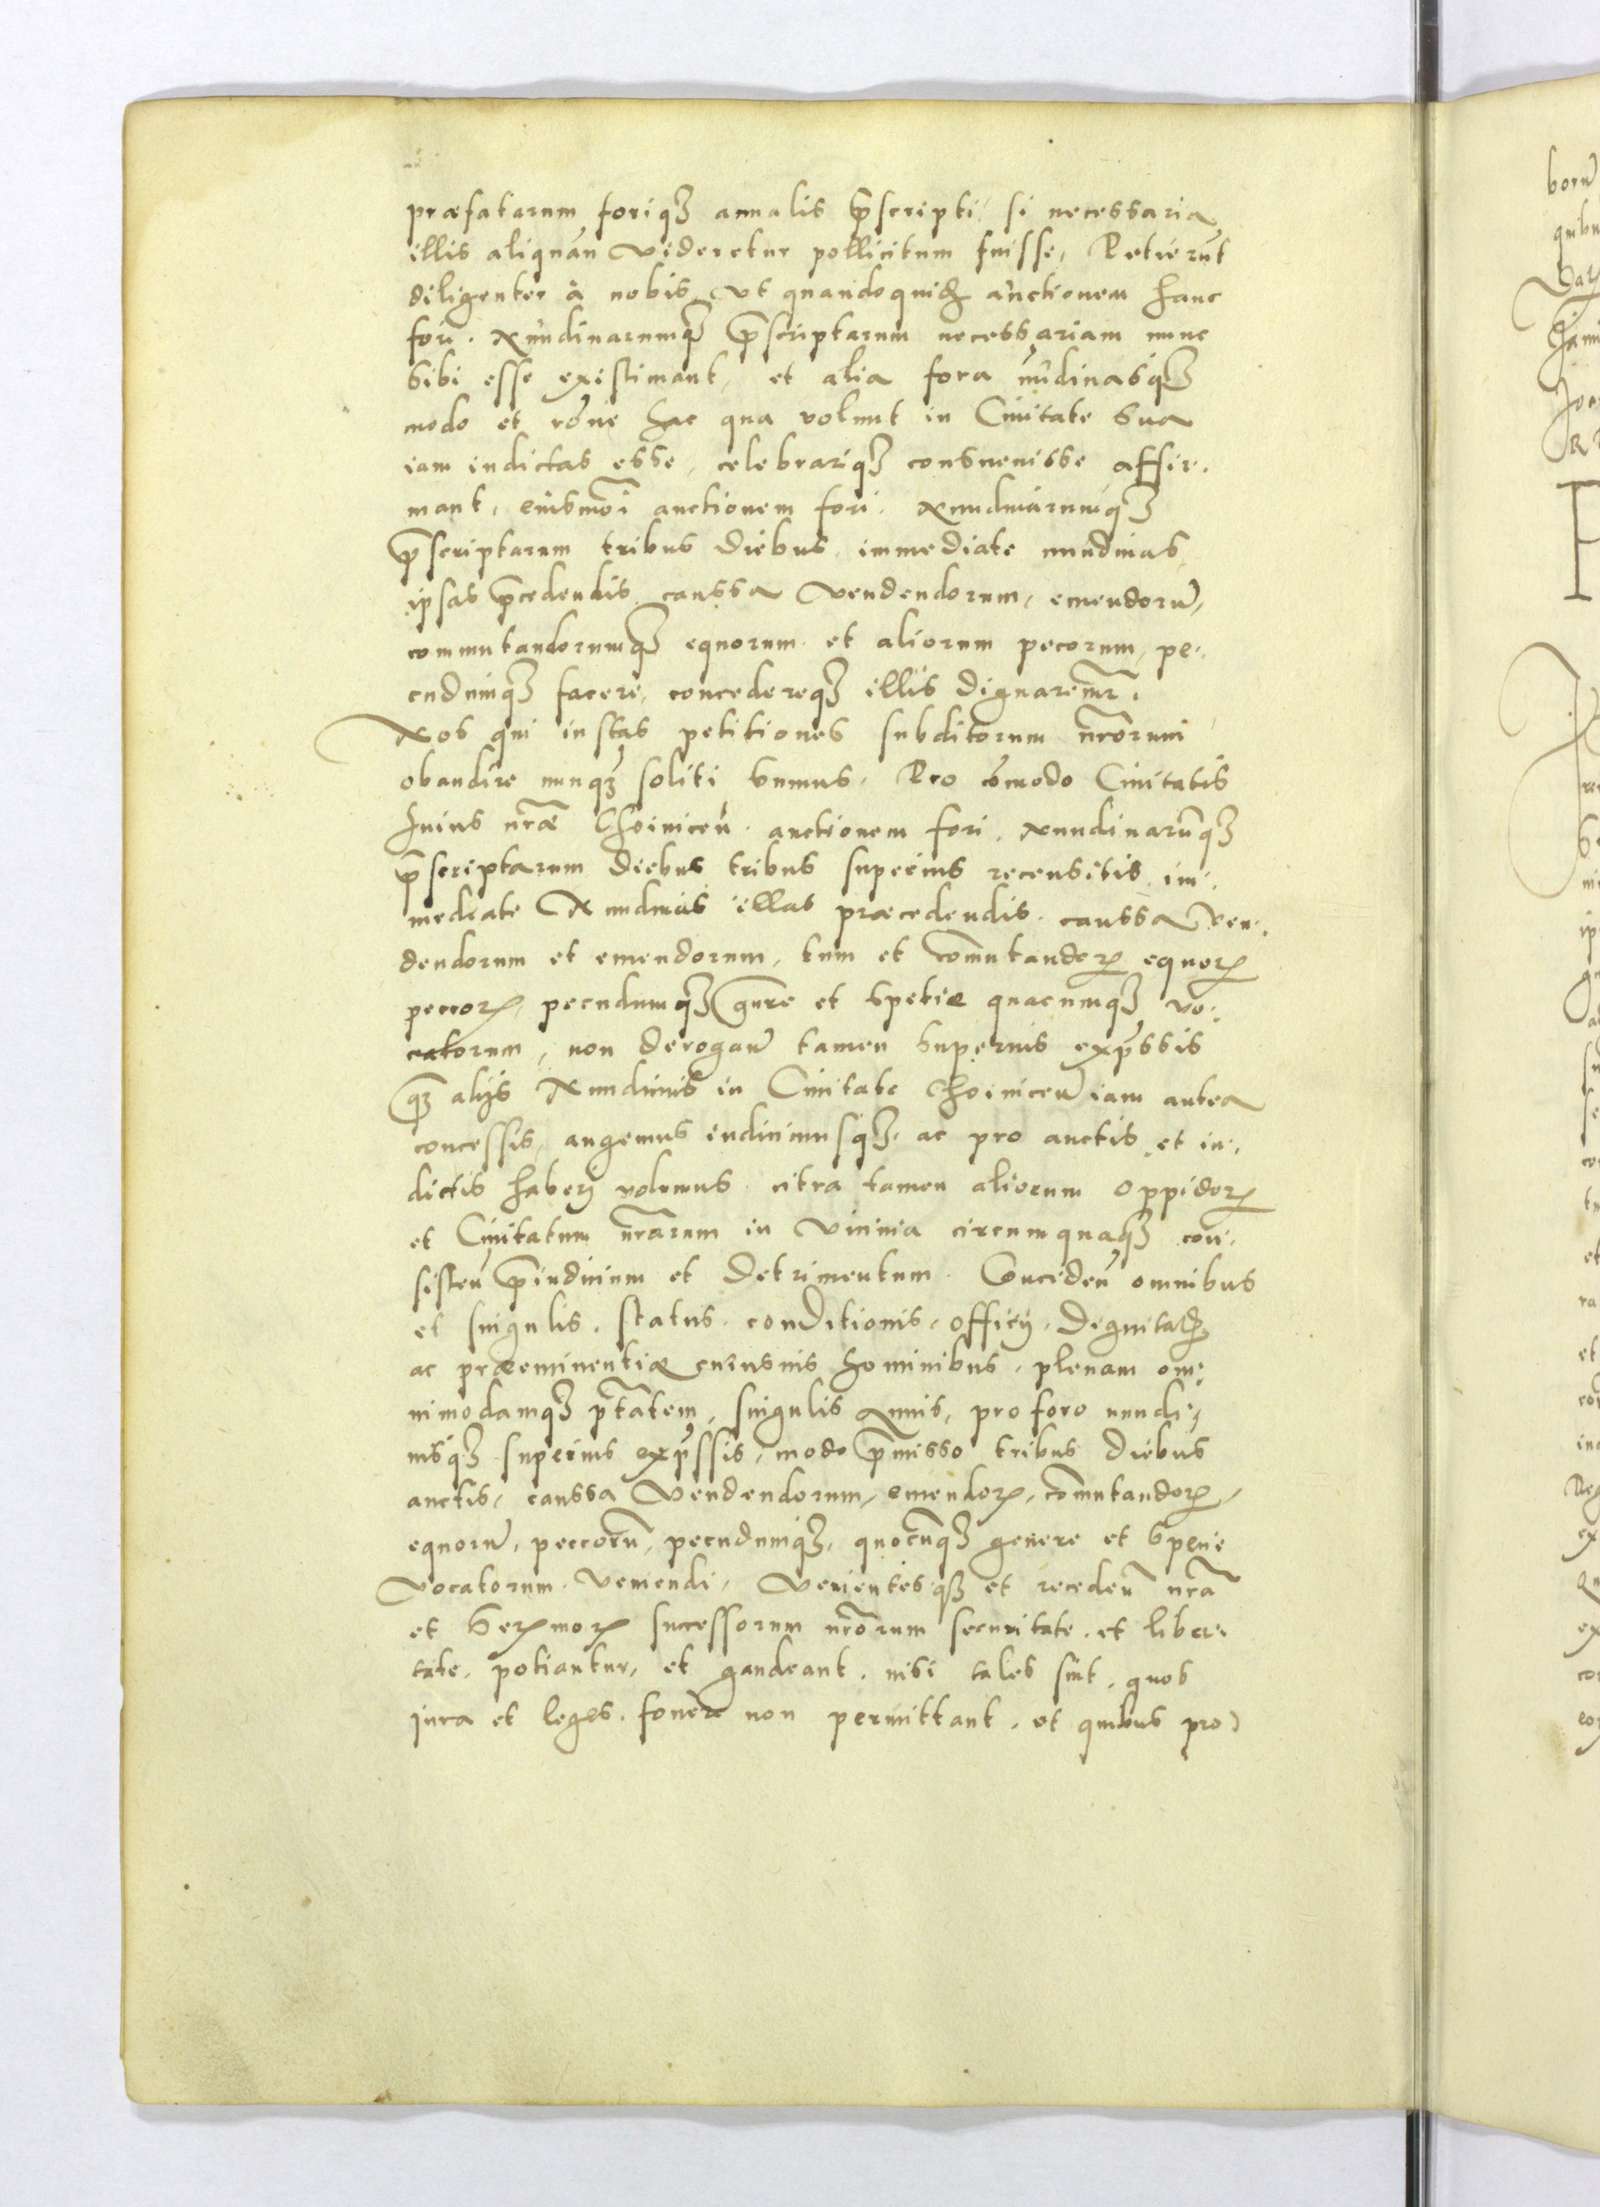 præfatarum foriq₃ annalis p̄scripti, si necessaria
illis aliquān videretur pollicitum fuisse, Petierūt
diligenter à nobis, vt quandoquid₃ auctionem hanc
fori. Nundinarumq₃ p̄scriptarum necessariam nunc
sibi esse existimant, et alia fora nūdinasq₃
modo et rōne hac qua volunt in Ciuitate sua
iam indictas esse, celebrariq₃ consueuisse affir.
mant, eiusmōi auctionem fori. Nundinarumq₃
p̄scriptarum tribus diebus immediate nundinas
ipsas p̄cedendis caussa vendendorum, emendorū,
commutandorumq₃ equorum et aliorum pecorum, pe.
cudumq₃ facere, concedereq₃ illis dignaremūr.
Nos qui iustas petitiones subditorum nr̄orum
obaudire nunq₃ soliti sumus. Pro cōmodo Ciuitatis
huius nr̄æ Choinicen̄. auctionem fori. Nundinarūq₃
p̄scriptarum diebus tribus superius recensitis im.
mediate Nundinas illas præcedendis. caussa Ven.
dendorum et emendorum, tum et com̄utandoꝝ equoꝝ
peccoꝝ, pecudumq₃ gn̄re et spetie quacumq₃ vo.
catorum, non derogan̄ tamen superius exp̄ssis
q₃ alijs Nundinis in Ciuitate Choinicen̄ iam antea
concessis, augemus indicimusq₃. ac pro auctis et in.
dictis haberi volumus. citra tamen aliorum oppidoꝝ
et Ciuitatum nr̄arum in vicinia circumquaq₃ con.
sisten̄ p̄iudicium et detrimentum. Conceden̄ omnibus
et singulis. status. conditionis. officij. dignitat₃
ac præeminentiæ cuiusuis hominibus. plenam om.
nimodamq₃ p̄tātem, singulis Annis, pro foro nundi.
nisq₃ superius exp̄ssis, modo p̄misso tribus diebus
auctis, caussa Vendendorum, emendoꝝ, com̄utandoꝝ,
equorū, peccorū, pecudumq₃, quocūq₃ genere et specie
vocatorum. Veniendi. Venientesq₃ et receden̄ nr̄a
et Serꝝmoꝝ successorum nr̄orum securitate. et liber.
tate. potiantur, et gaudeant. nisi tales sint, quos
iura et leges. fouere non permittant. et quibus pro